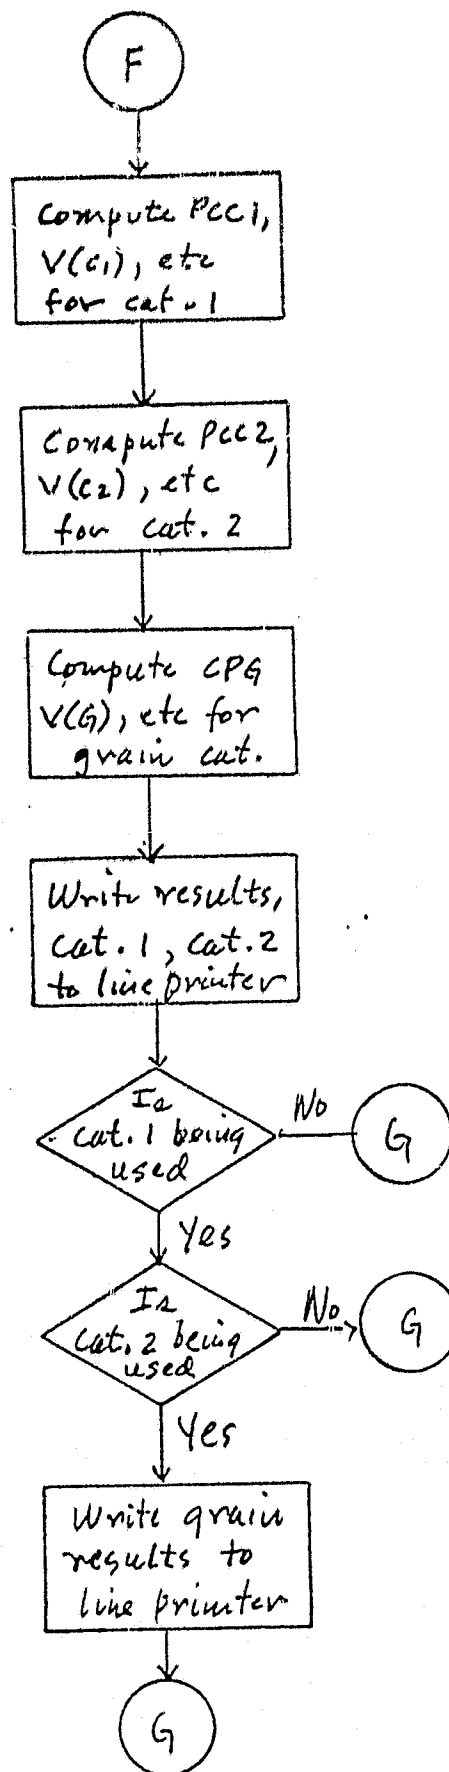 F
Compute PCC1,
V(C1), etc
for cat. 1
Compute PCC2,
V(C2), etc
for cat. 2
Compute CPG
V(G), etc for
grain cat.
Write results,
Cat. 1, Cat. 2
to line printer
Is
cat. 1 being
used
No
G
Yes
Is
Cat. 2 being
used
No
G
Yes
Write grain
results to
line printer
G